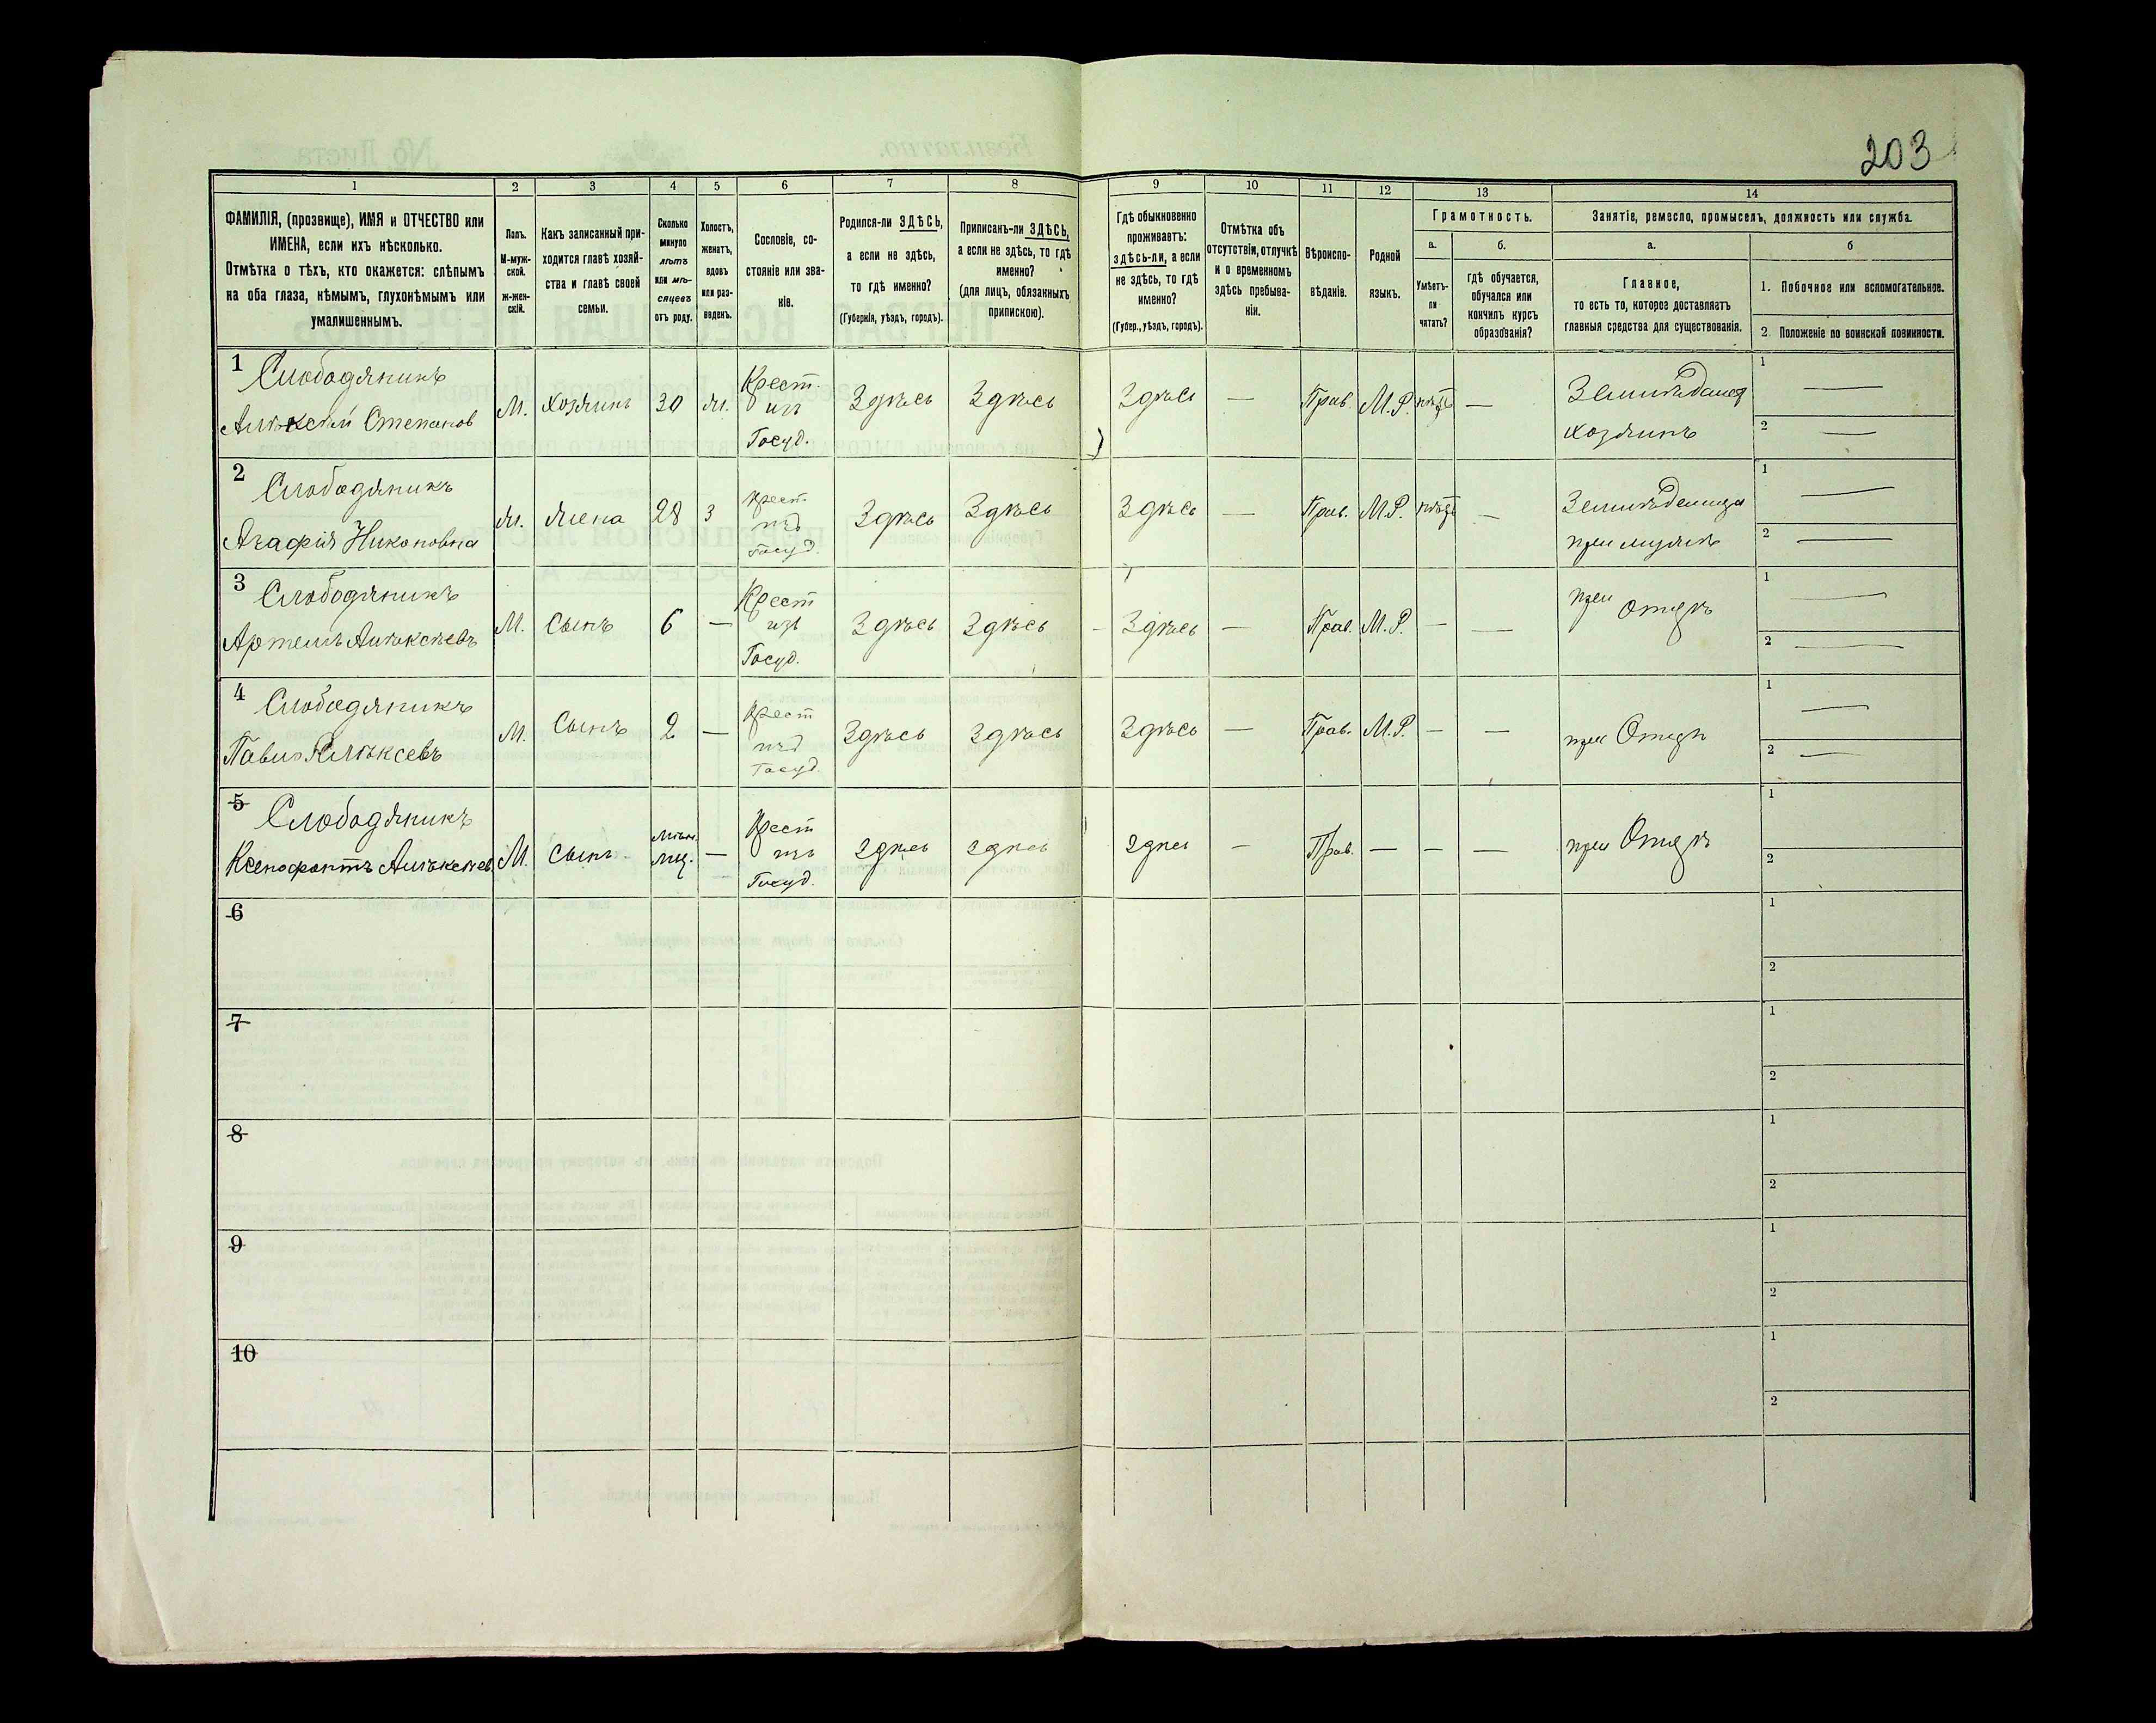 203
1 2 3 4 5 6 7 8 9 10 11 12 13 14
ФАМИЛІЯ, (прозвище), ИМЯ и ОТЧЕСТВО или
ИМЕНА, если ихъ нѣсколько.
Отмѣтка о тѣхъ, кто окажется: слѣпымъ
на оба глаза, нѣмымъ, глухонѣмымъ или
умалишеннымъ.
Полъ.
М-муж-
ской.
ж-жен-
скій.
Какъ записанный при-
ходится главѣ хозяй-
ства и главѣ своей
семьи.
Сколько
минуло
лѣтъ
или мѣ-
сяцевъ
отъ роду.
Холостъ,
женатъ,
вдовъ
или раз-
веденъ.
Сословіе, со-
стояніе или зва-
ніе.
Родился-ли ЗДѢСЬ,
а если не здѣсь,
то гдѣ именно?
(Губернія, уѣздъ, городъ).
Приписанъ-ли ЗДѢСЬ,
а если не здѣсь, то гдѣ
именно?
(для лицъ, обязанныхъ
припискою).
Гдѣ обыкновенно
проживаетъ:
здѣсь-ли, а если
не здѣсь, то гдѣ
именно?
(Губер., уѣздъ, городъ).
Отмѣтка объ
отсутствіи, отлучкѣ
и о временномъ
здѣсь пребыва-
ніи.
Вѣроиспо-
вѣданіе.
Родной
языкъ.
Грамотность.
а.
Умѣетъ-
ли
читать?
б.
гдѣ обучается,
обучался или
кончилъ курсъ
образованія?
Занятіе, ремесло, промыселъ, должность или служба.
а.
Главное,
то есть то, которое доставляетъ
главныя средства для существованія.
б
1. Побочное или вспомогательное.
2. Положеніе по воинской повинности.
1 Слободяникъ
Алѣксѣй Степанов
М. хозяинъ 30 ж. Крест. изъ Госуд. Здѣсь Здѣсь Здѣсь — Прав. М.Р. нѣтъ —
хозяинъ
1 —
2 —
2 Слободяникъ
Агафія Никоновна
Ж. жена 28 з Крест изъ Госуд. Здѣсь Здѣсь Здѣсь — Прав. М.Р. нѣтъ —
при мужѣ
1 —
2 —
3 Слободяникъ
Артемъ Алѣксѣевъ
М. Сынъ 6 — Крест изъ Госуд. Здѣсь Здѣсь Здѣсь — Прав. М.Р. — —
при Отцѣ
1 —
2 —
4 Слободяникъ
Павло Алѣксевъ
М. Сынъ 2 — Крест изъ Госуд. Здѣсь Здѣсь Здѣсь — Прав. М.Р. — —
при Отцѣ
1 —
2 —
5 Слободяникъ
Ксенофонтъ Алѣксѣев
М. Сынъ — Крест изъ Госуд. Здѣсь Здѣсь Здѣсь — Прав. — — —
при Отцѣ
1
2
6
1
2
7
1
2
8
1
2
9
1
2
10
1
2